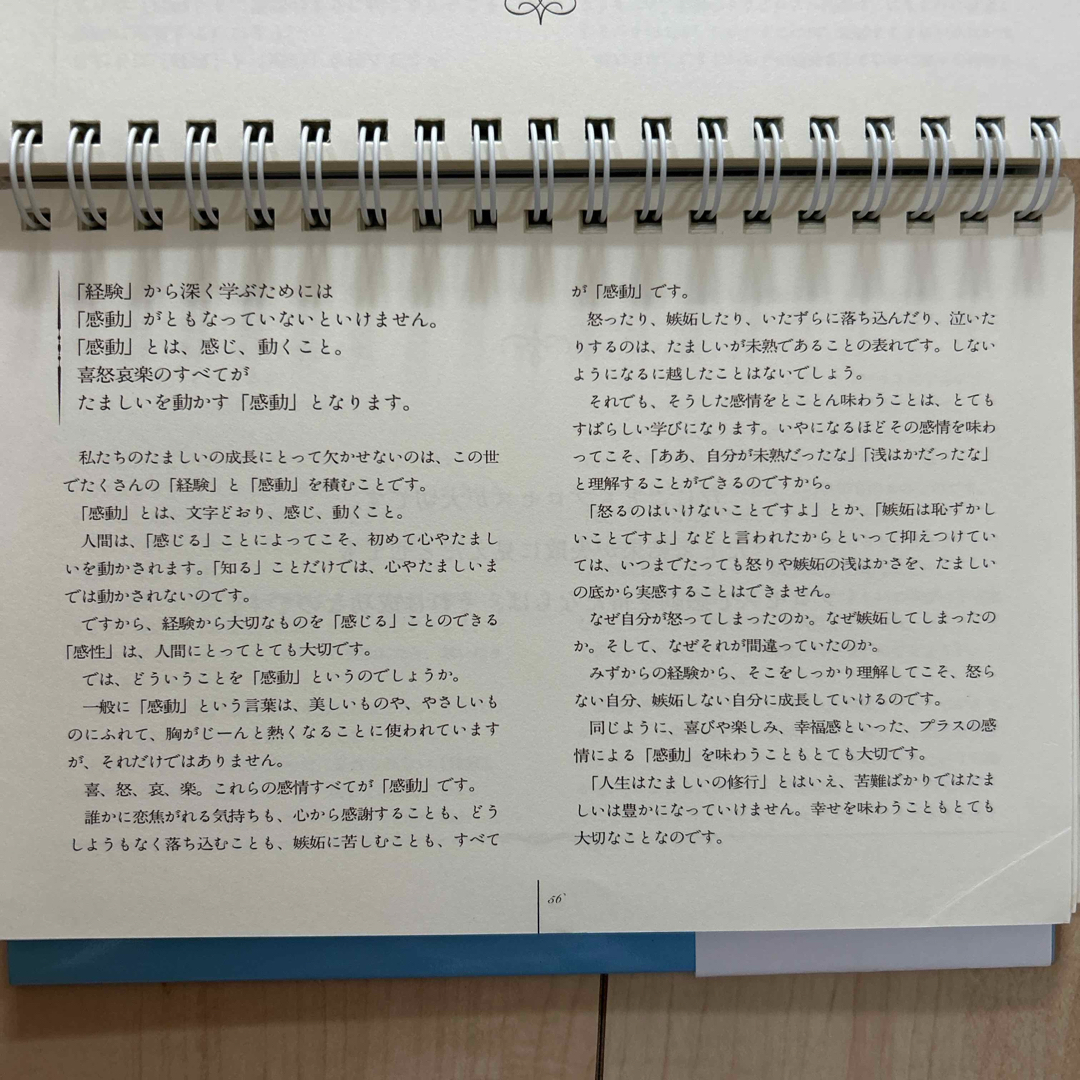 「経験」から深く学ぶためには
「感動」がともなっていないといけません。
「感動」とは、感じ、動くこと。
喜怒哀楽のすべてが
たましいを動かす「感動」となります。
私たちのたましいの成長にとって欠かせないのは、この世
でたくさんの「経験」と「感動」を積むことです。
「感動」とは、文字どおり、感じ、動くこと。
人間は、「感じる」ことによってこそ、初めて心やたまし
いを動かされます。「知る」ことだけでは、心やたましいま
では動かされないのです。
ですから、経験から大切なものを「感じる」ことのできる
「感性」は、人間にとってとても大切です。
では、どういうことを「感動」というのでしょうか。
一般に「感動」という言葉は、美しいものや、やさしいも
のにふれて、胸がじーんと熱くなることに使われています
が、それだけではありません。
喜、怒、哀、楽。これらの感情すべてが「感動」です。
誰かに恋焦がれる気持ちも、心から感謝することも、どう
しようもなく落ち込むことも、嫉妬に苦しむことも、すべて
が「感動」です。
怒ったり、嫉妬したり、いたずらに落ち込んだり、泣いた
りするのは、たましいが未熟であることの表れです。しない
ようになるに越したことはないでしょう。
それでも、そうした感情をとことん味わうことは、とても
すばらしい学びになります。いやになるほどその感情を味わ
ってこそ、「ああ、自分が未熟だったな」「浅はかだったな」
と理解することができるのですから。
「怒るのはいけないことですよ」とか、「嫉妬は恥ずかし
いことですよ」などと言われたからといって抑えつけてい
ては、いつまでたっても怒りや嫉妬の浅はかさを、たましい
の底から実感することはできません。
なぜ自分が怒ってしまったのか。なぜ嫉妬してしまったの
か。そして、なぜそれが間違っていたのか。
みずからの経験から、そこをしっかり理解してこそ、怒ら
ない自分、嫉妬しない自分に成長していけるのです。
同じように、喜びや楽しみ、幸福感といった、プラスの感
情による「感動」を味わうこともとても大切です。
「人生はたましいの修行」とはいえ、苦難ばかりではたま
しいは豊かになっていけません。幸せを味わうこともとても
大切なことなのです。
56